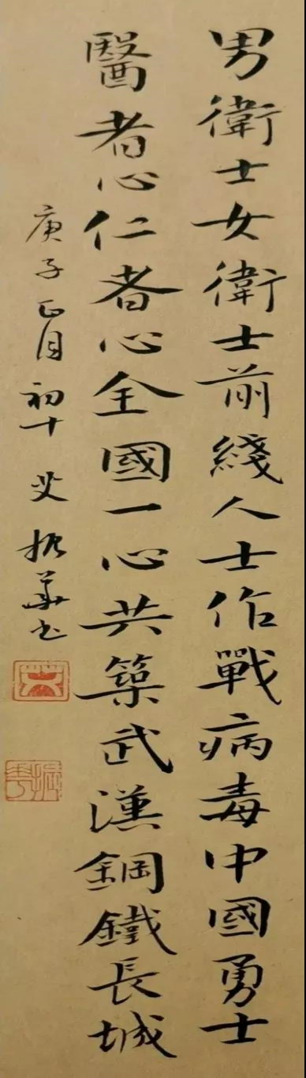 男衛士女衛士前綫人士作戰病毒中國勇士
醫者心仁者心全國一心共築武漢鋼鐵長城
庚子正月初十 振華书
振華